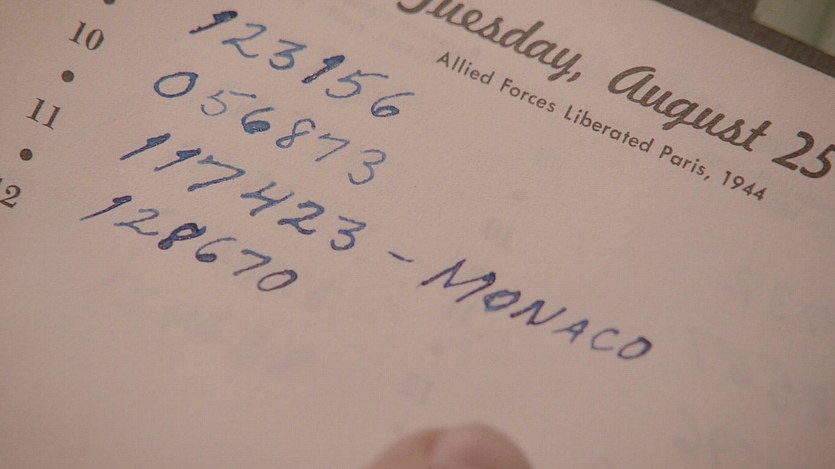 Tuesday, August 25
Allied Forces Liberated Paris, 1944
10
11
12
123156
056873
117423 - MONACO
128670